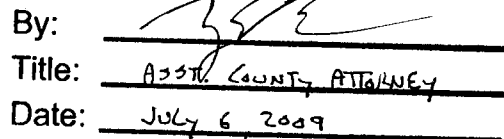 By:
Title: ASST. COUNTY ATTORNEY
Date: JULY 6 2009